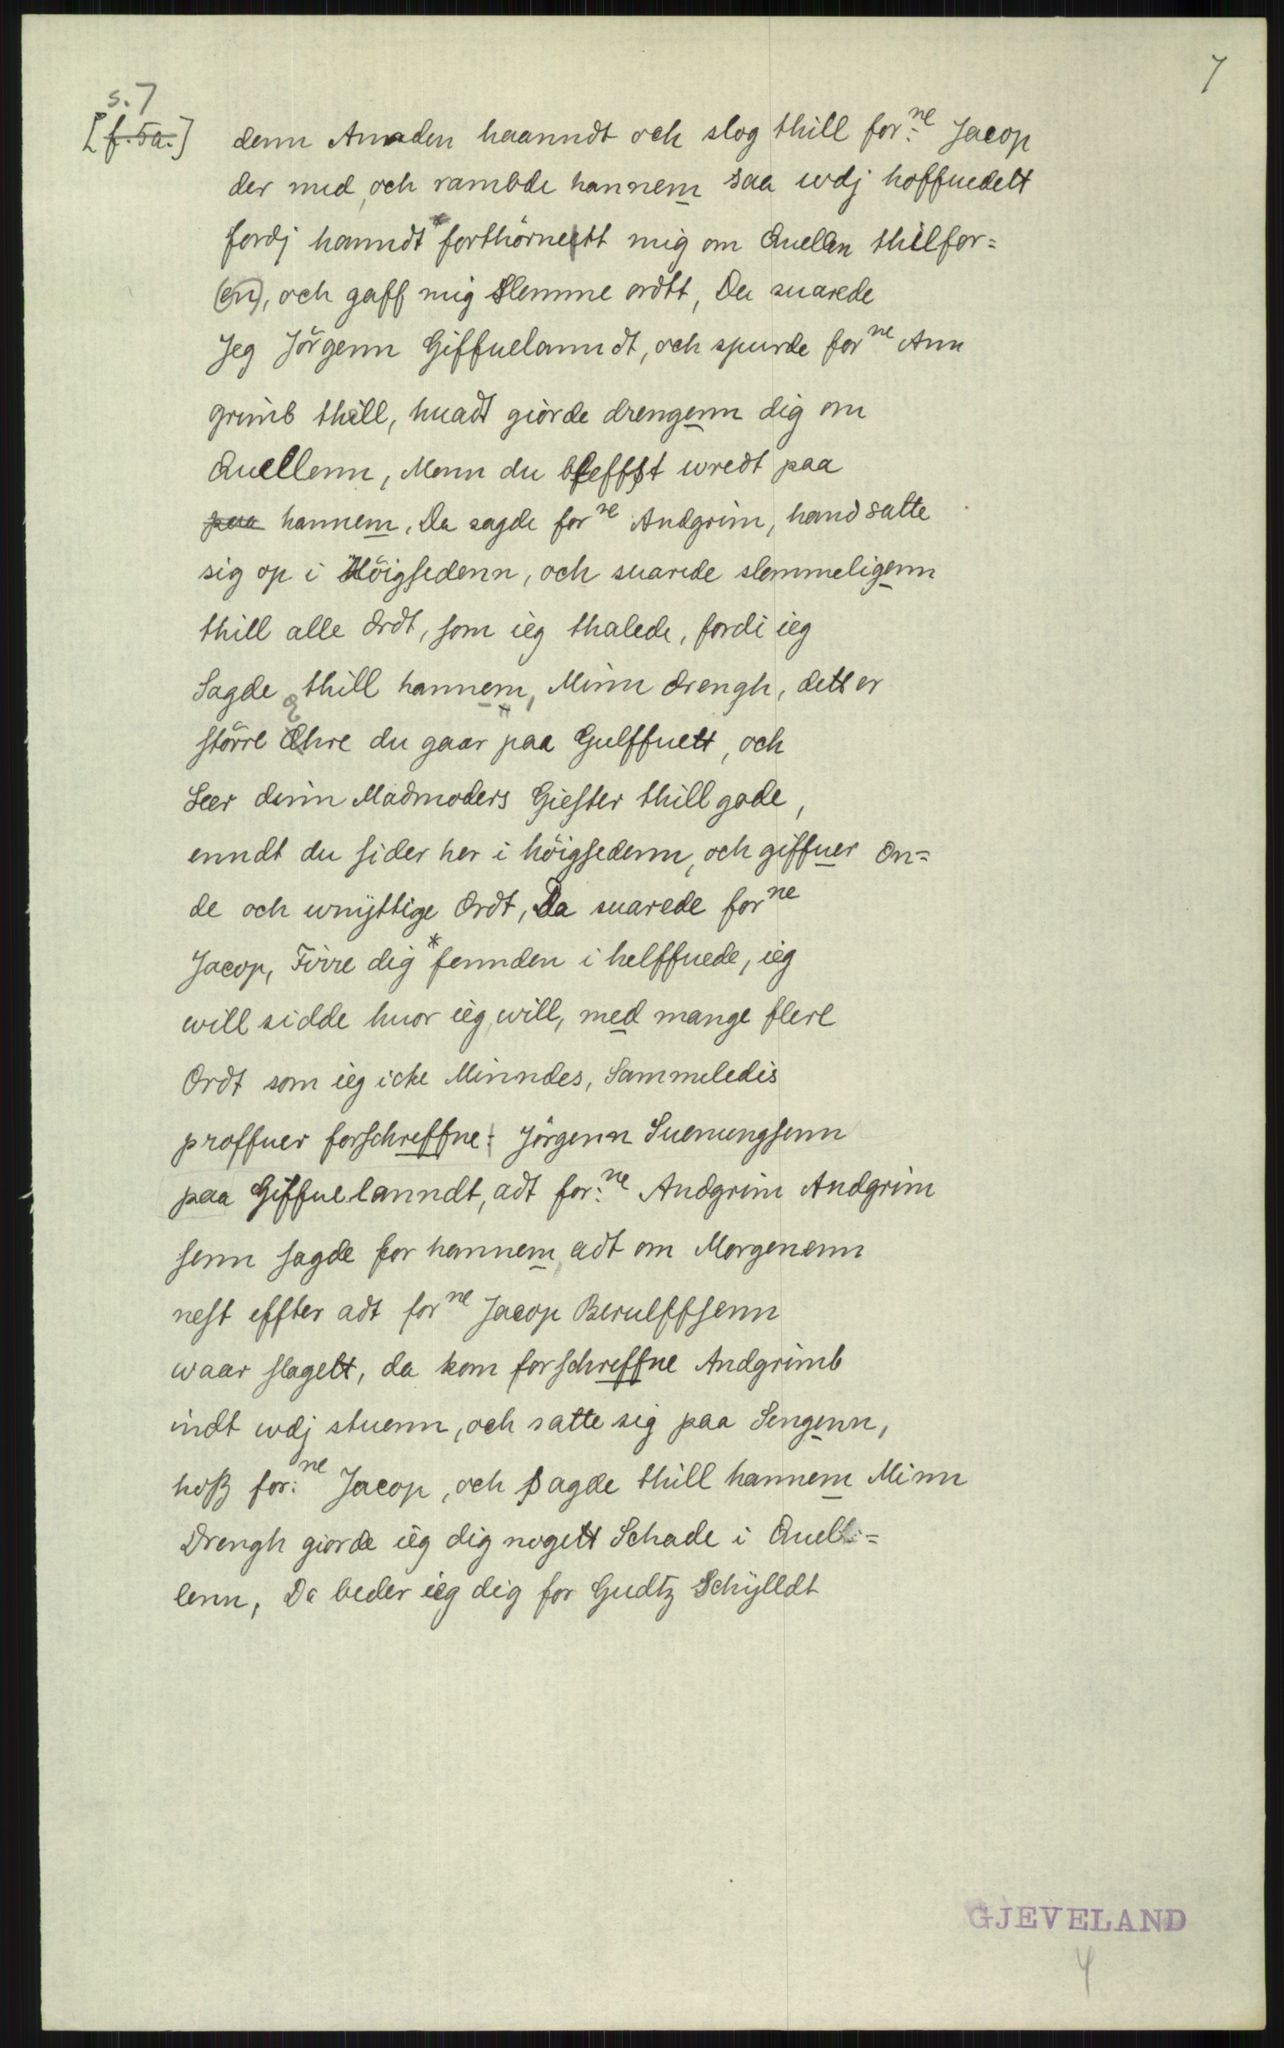 7
s. 7
[f. 5a.] denn Anaden haanndt och slog thill for:ne Jacop
der med, och rambde hannem saa wdj hoffuedett
fordj hanndt *forthörnett mig om Quellen thilfor=
(en), och gaff mig Slemme ordtt, Da suarede
Jeg Jörgenn Giffuelanndt, och spurde forne Ann
grimb thill, huadt giorde drengenn dig om
Quellenn, Menn du bleffst wredt paa
paa hannem, Da sagde forne Andgrim, hand satte
sig op i Höigsedenn, och suarede slemmeligenn
thill alle Ordt, som ieg thalede, fordi ieg
Sagde thill hannem, Minn drengh, dett er
större Ehre du gaar paa Gulffuett, och
Seer dinn Madmoders Giester thill gode,
enndt du sider her i höigsedenn, och giffuer On=
de och wnyttige Ordt, Da suarede forne
Jacop, Firre dig *fennden i helffuede, ieg
will sidde huor ieg will, med mange flere
Ordt som ieg icke Minndes, Sammeledis
proffuer forschreffne: Jörgenn Suenungsenn
paa Giffuelanndt, adt for:ne Andgrim Andgrim
senn sagde for hannem, adt om Morgenenn
nest effter adt forne Jacop Berulffsenn
waar slagett, da kom forschreffne Andgrimb
indt wdj stuenn, och satte sig paa Sengenn,
hoß for:ne Jacop, och Sagde thill hannem Minn
Drengh giorde ieg dig nogett Schade i Quell=
lenn, Da beder ieg dig for Gudtz Schylldt
GJEVELAND
4